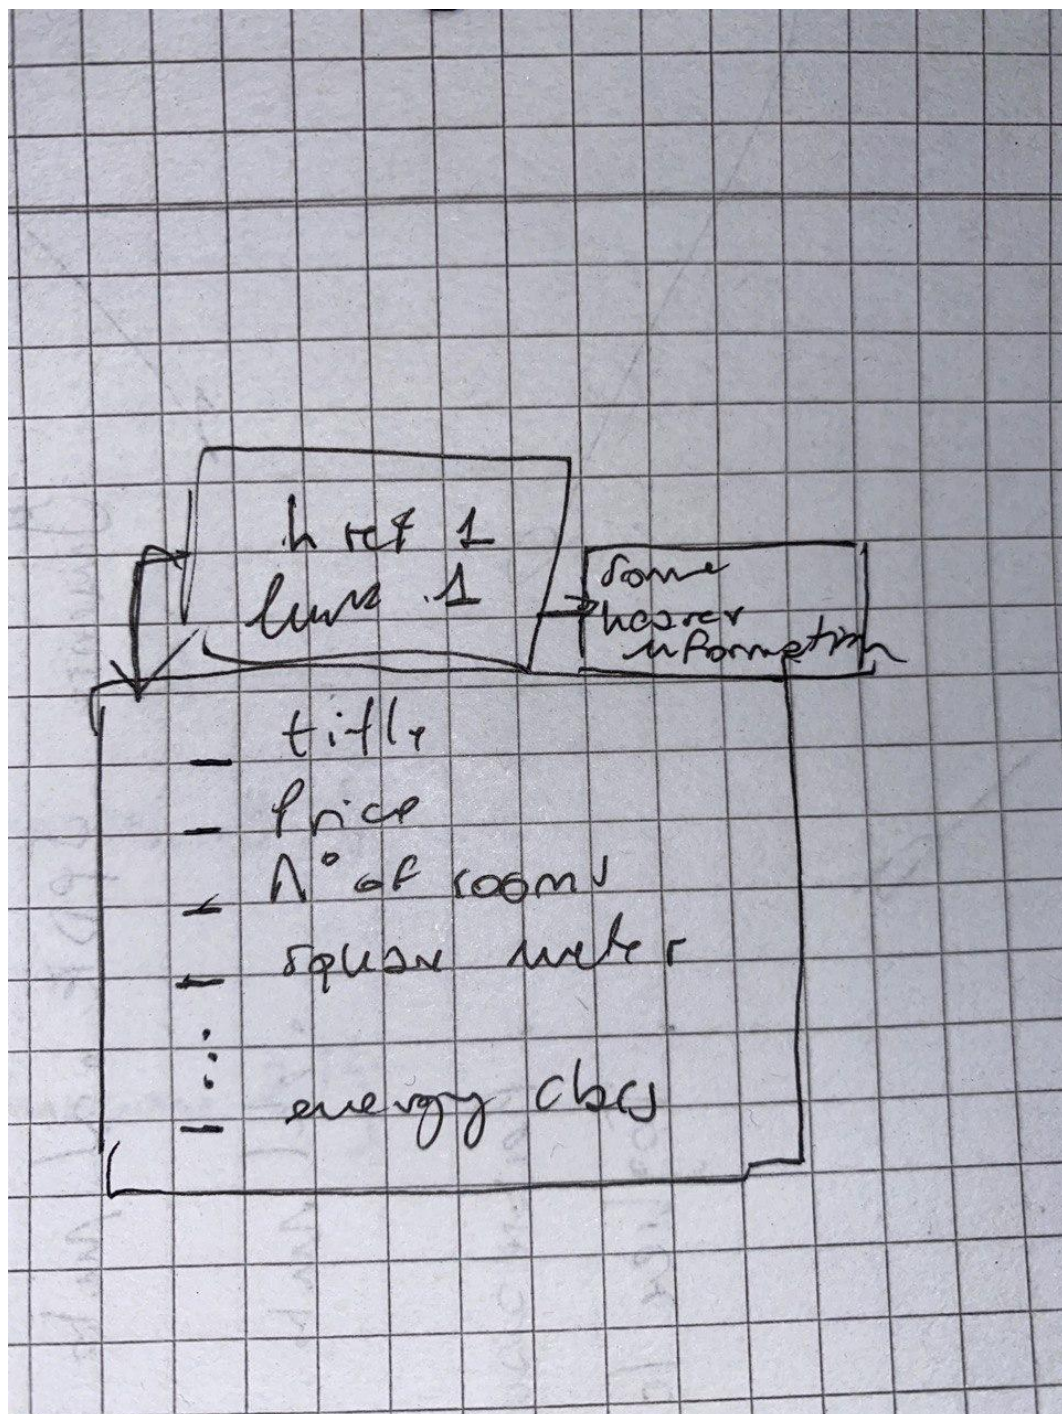 href 1
link .1
Some
header
information
title
Price
N° of rooms
square meter
energy class